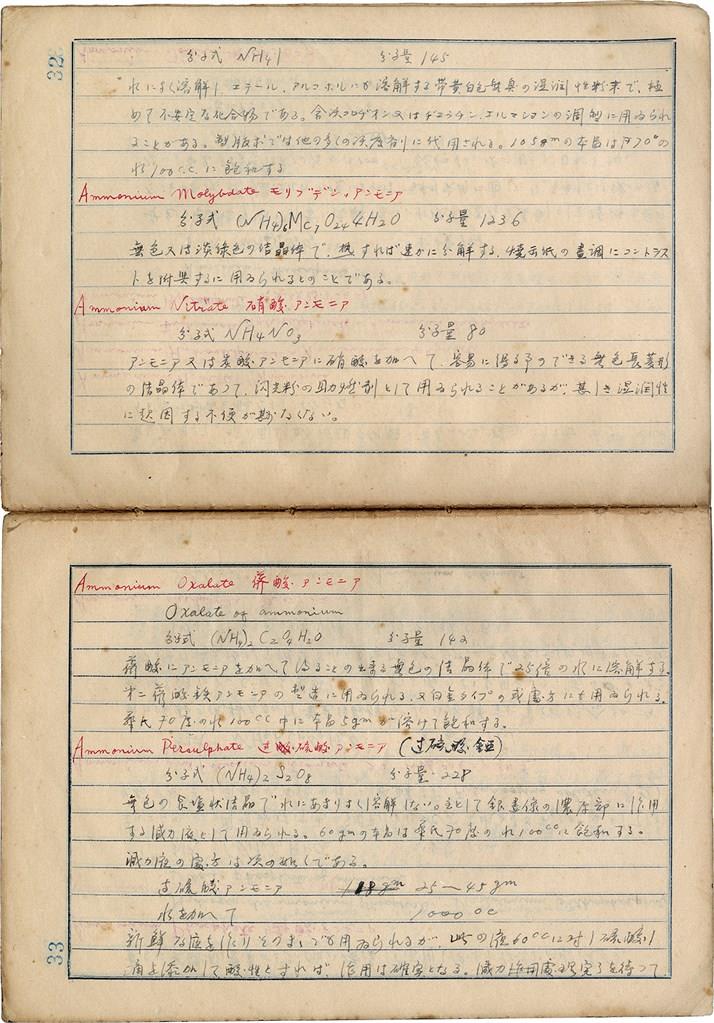 32
分子式 NH4I 分子量 145
水によく溶解し、エテール、アルコホルにか溶解する帯黄白色無臭の湿潤性粉末で、極
めて不安定な化合物である。含沃コロヂオン又はゲラチン、エルマションの調製に用ゐられ
ることがある。製版术では他の多くの沃度剤に代用される。105gmの本品はF70°の
水100c.c.に飽和する
Ammonium Molybdate モリブデン酸アンモニア
分子式 (NH4)6Mo7O24 4H2O 分子量 1236
無色又は淡緑色の結晶体で、熱すれば速かに分解する、焼出紙の画調にコントラス
トを附與するに用ゐられるとのことである。
Ammonium Nitrate 硝酸アンモニア
分子式 NH4NO3 分子量 80
アンモニア又は炭酸アンモニアに硝酸を加へて、容易に得る事のできる無色長菱形
の結晶体であつて、閃光粉の助燃剤として用ゐられることがあるが、甚しき湿潤性
に起因する不便が尠なくない。
Ammonium Oxalate 蓚酸アンモニア
Oxalate of ammonium
分子式 (NH4)2 C2O4 H2O 分子量 142
蓚酸にアンモニアを加へて得ることの出来る無色の結晶体で25倍の水に溶解する。
第二蓚酸鉄アンモニアの製造に用ゐられる、又白金タイプの或處方にも用ゐられる。
華氏70度の水100cc中に本品5gmが溶けて飽和する。
Ammonium Persulphate 過酸硫酸アンモニア (过硫酸銨)
分子式 (NH4)2 S2O8 分子量 228
無色の食塩状結晶で水にあまりよく溶解しない。主として銀畫像の濃厚部に作用
する減力液として用ゐられる。60gmの本品は華氏70度の水100ccに飽和する。
減力液の處方は次の如くである。
过硫酸アンモニア 25〜45gm
水を加へて 1000cc
新鮮な液を作りそのまゝでも用ゐられるが、此の液60ccに対し硫酸1
滴を添加して酸性とすれば、作用は確実となる。減力作用處理完了を待つて
33